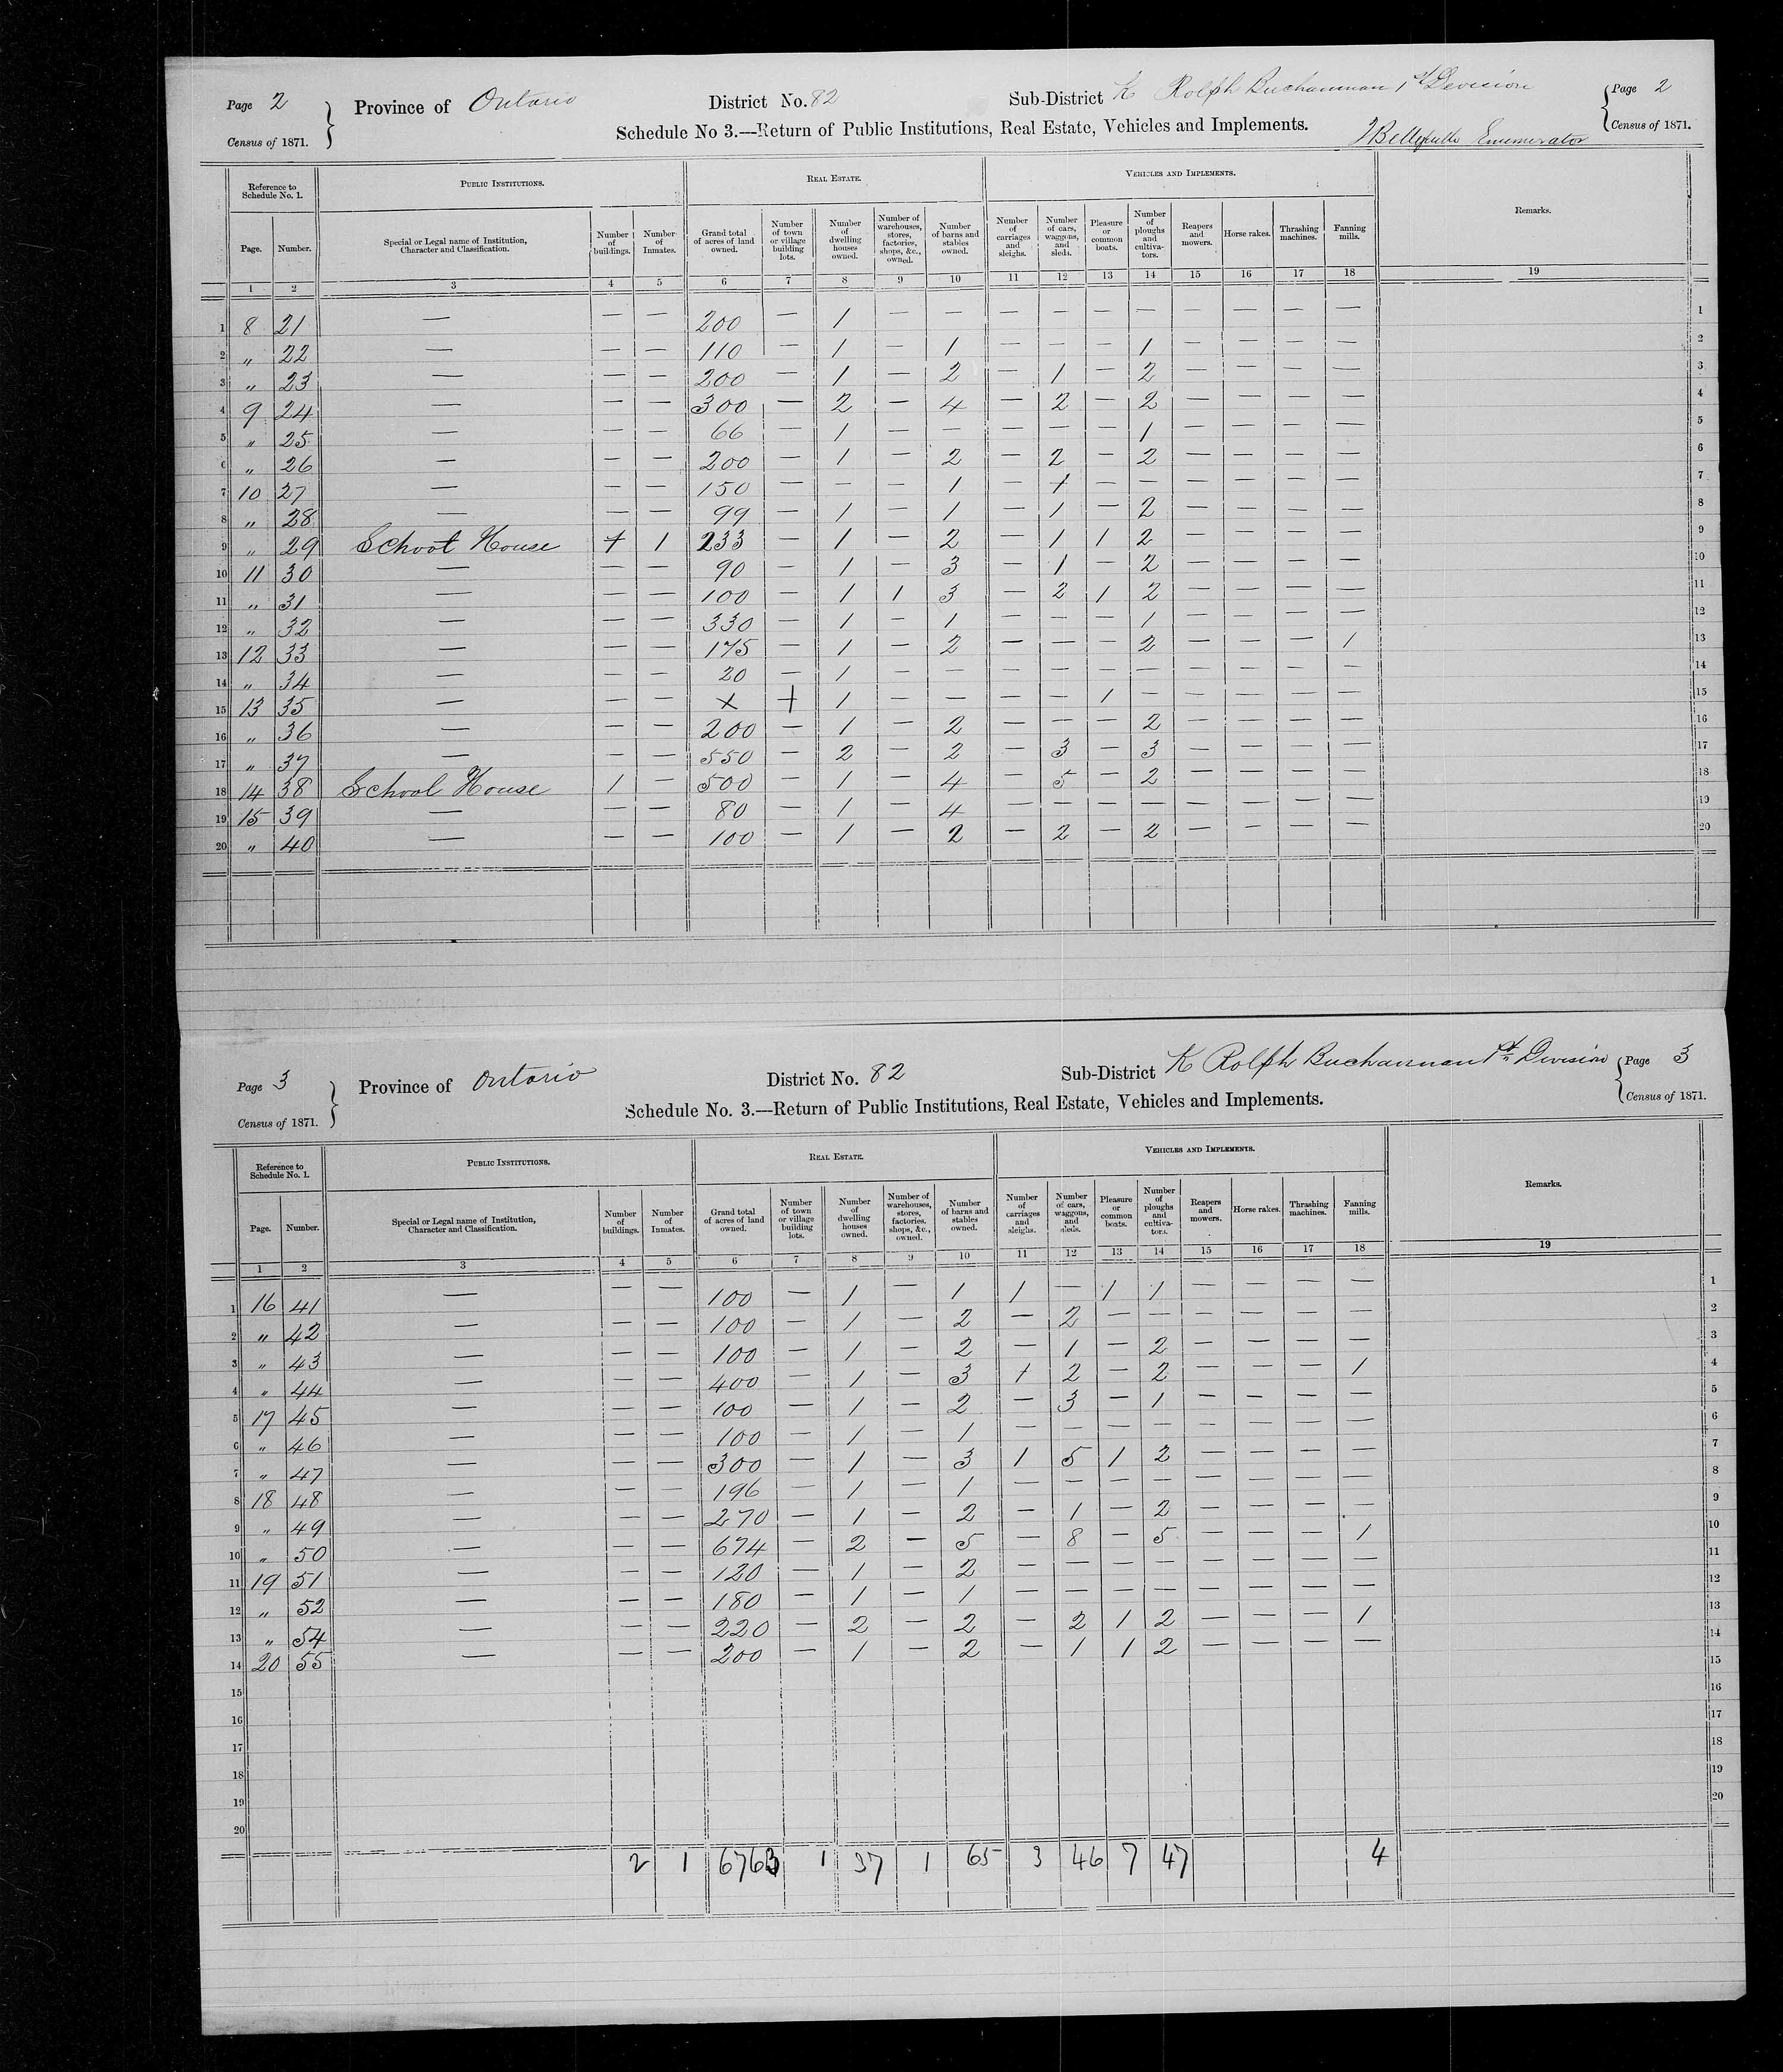 Page 2 } Province of Ontario District No. 82 Sub-District K Rolph Buchannan 1st Devision { Page 2
Census of 1871. Schedule No 3.—Return of Public Institutions, Real Estate, Vehicles and Implements. Enumerator Census of 1871.
Reference to Schedule No. 1. PUBLIC INSTITUTIONS. REAL ESTATE. VEHICLES AND IMPLEMENTS. Remarks.
Page. Number. Special or Legal name of Institution, Character and Classification. Number of buildings. Number of Inmates. Grand total of acres of land owned. Number of town or village building lots. Number of dwelling houses owned. Number of warehouses, stores, factories, shops, &c., owned. Number of barns and stables owned. Number of carriages and sleighs. Number of cars, waggons, and sleds. Pleasure or common boats. Number of ploughs and cultiva- tors. Reapers and mowers. Horse rakes. Thrashing machines. Fanning mills.
1 2 3 4 5 6 7 8 9 10 11 12 13 14 15 16 17 18 19
1 8 21 — — — 200 — 1 — — — — — — — — — — 1
2 " 22 — — — 110 — 1 — 1 — — — 1 — — — — 2
3 " 23 — — — 200 — 1 — 2 — 1 — 2 — — — — 3
4 9 24 — — — 300 — 2 — 4 — 2 — 2 — — — — 4
5 " 25 — — — 66 — 1 — — — — — 1 — — — — 5
6 " 26 — — — 200 — 1 — 2 — 2 — 2 — — — — 6
7 10 27 — — — 150 — — — 1 — + — — — — — — 7
8 " 28 — — — 99 — 1 — 1 — 1 — 2 — — — — 8
9 " 29 School House + 1 233 — 1 — 2 — 1 1 2 — — — — 9
10 11 30 — — — 90 — 1 — 3 — 1 — 2 — — — — 10
11 " 31 — — — 100 — 1 1 3 — 2 1 2 — — — — 11
12 " 32 — — — 330 — 1 — 1 — — — 1 — — — — 12
13 12 33 — — — 175 — 1 — 2 — — — 2 — — — 1 13
14 " 34 — — — 20 — 1 — — — — — — — — — — 14
15 13 35 — — — x + 1 — — — — 1 — — — — — 15
16 " 36 — — — 200 — 1 — 2 — — — 2 — — — — 16
17 " 37 — — — 550 — 2 — 2 — 3 — 3 — — — — 17
18 14 38 School House 1 — 500 — 1 — 4 — 5 — 2 — — — — 18
19 15 39 — — — 80 — 1 — 4 — — — — — — — — 19
20 " 40 — — — 100 — 1 — 2 — 2 — 2 — — — — 20
Page 3 } Province of Ontario District No. 82 Sub-District K Rolph Buchannan 1st Devision { Page 3
Census of 1871. Schedule No. 3.—Return of Public Institutions, Real Estate, Vehicles and Implements. Census of 1871.
Reference to Schedule No. 1. PUBLIC INSTITUTIONS. REAL ESTATE. VEHICLES AND IMPLEMENTS. Remarks.
Page. Number. Special or Legal name of Institution, Character and Classification. Number of buildings. Number of Inmates. Grand total of acres of land owned. Number of town or village building lots. Number of dwelling houses owned. Number of warehouses, stores, factories, shops, &c., owned. Number of barns and stables owned. Number of carriages and sleighs. Number of cars, waggons, and sleds. Pleasure or common boats. Number of ploughs and cultiva- tors. Reapers and mowers. Horse rakes. Thrashing machines. Fanning mills.
1 2 3 4 5 6 7 8 9 10 11 12 13 14 15 16 17 18 19
1 16 41 — — — 100 — 1 — 1 1 — 1 1 — — — — 1
2 " 42 — — — 100 — 1 — 2 — 2 — — — — — — 2
3 " 43 — — — 100 — 1 — 2 — 1 — 2 — — — — 3
4 " 44 — — — 400 — 1 — 3 + 2 — 2 — — — 1 4
5 17 45 — — — 100 — 1 — 2 — 3 — 1 — — — — 5
6 " 46 — — — 100 — 1 — 1 — — — — — — — — 6
7 " 47 — — — 300 — 1 — 3 1 5 1 2 — — — — 7
8 18 48 — — — 196 — 1 — 1 — — — — — — — — 8
9 " 49 — — — 270 — 1 — 2 — 1 — 2 — — — — 9
10 " 50 — — — 674 — 2 — 5 — 8 — 5 — — — 1 10
11 19 51 — — — 120 — 1 — 2 — — — — — — — — 11
12 " 52 — — — 180 — 1 — 1 — — — — — — — — 12
13 " 54 — — — 220 — 2 — 2 — 2 1 2 — — — 1 13
14 20 55 — — — 200 — 1 — 2 — 1 1 2 — — — — 14
15 15
16 16
17 17
18 18
19 19
20 20
2 1 6763 1 37 1 65 3 46 7 47 4